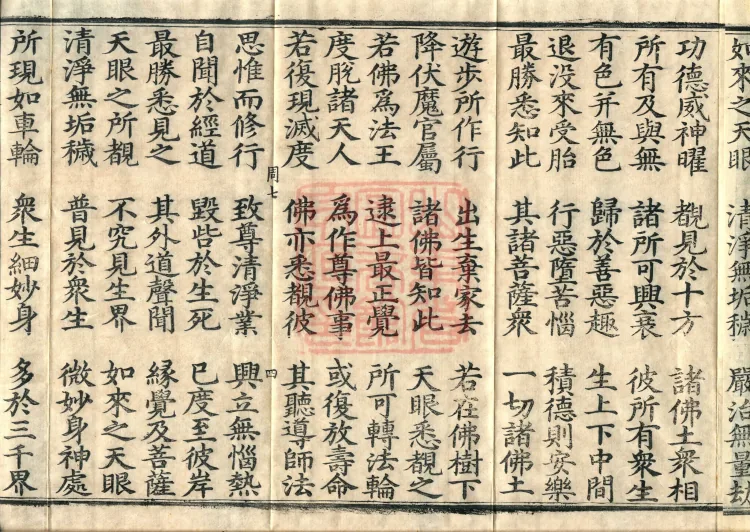 如來之天眼　清淨無垢穢　嚴治無量劫
功德威神曜　覩見於十方　諸佛土衆相
所有及與無　諸所可興衰　彼所有衆生
有色并無色　歸於善惡趣　生上下中間
退没來受胎　行惡墮苦惱　積德則安樂
最勝悉知此　其諸菩薩衆　一切諸佛土
遊歩所作行　出生棄家去　若在佛樹下
降伏魔官屬　諸佛皆知此　天眼悉覩之
若佛爲法王　逮上最正覺　所可轉法輪
度脫諸天人　爲作尊佛事　或復放壽命
若復現滅度　佛亦悉覩彼　其聽導師法
周七　四
思惟而修行　致尊清淨業　興立無惱熱
自聞於經道　毀呰於生死　已度至彼岸
最勝悉見之　其外道聲聞　縁覺及菩薩
天眼之所覩　不究見生界　如來之天眼
清淨無垢穢　普見於衆生　微妙身神處
所現如車輪　衆生細妙身　多於三千界